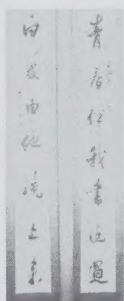 青春似我書邊過
白髮由他鏡上來